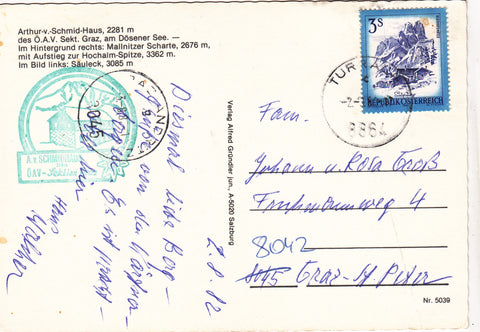 Arthur-v.-Schmid-Haus, 2281 m
des Ö.A.V. Sekt. Graz, am Dösener See. —
Im Hintergrund rechts: Mallnitzer Scharte, 2676 m,
mit Aufstieg zur Hochalm-Spitze, 3362 m.
Im Bild links: Säuleck, 3085 m
A.v. SCHMIDHAUS
ÖAV-Sektion
8045
Diesmal liebe Berg-
grüße von den
Es ist
hier
2.8.82
Verlag Alfred Gründler jun., A-5020 Salzburg
3 S
REPUBLIK ÖSTERREICH
8864
Fam.
Johann u. Rosa Groß
weg 4
8042
8045 Graz-St Peter
Nr. 5039